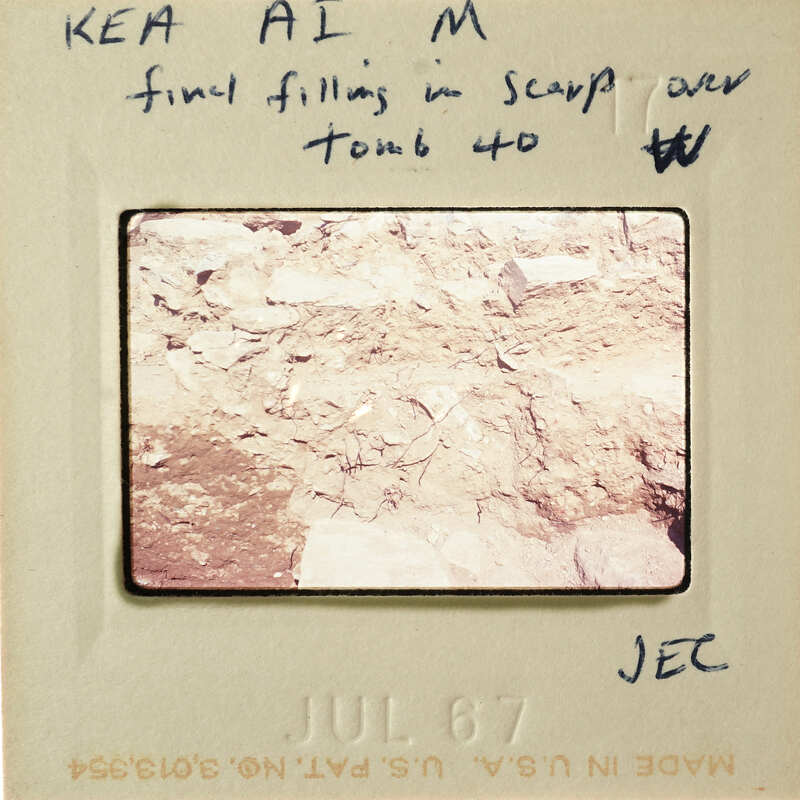 KEA AI M
17
final filling in scarp over
tomb 40 W
JEC
JUL 67
MADE IN U.S.A. U.S. PAT. NO. 3,013,354